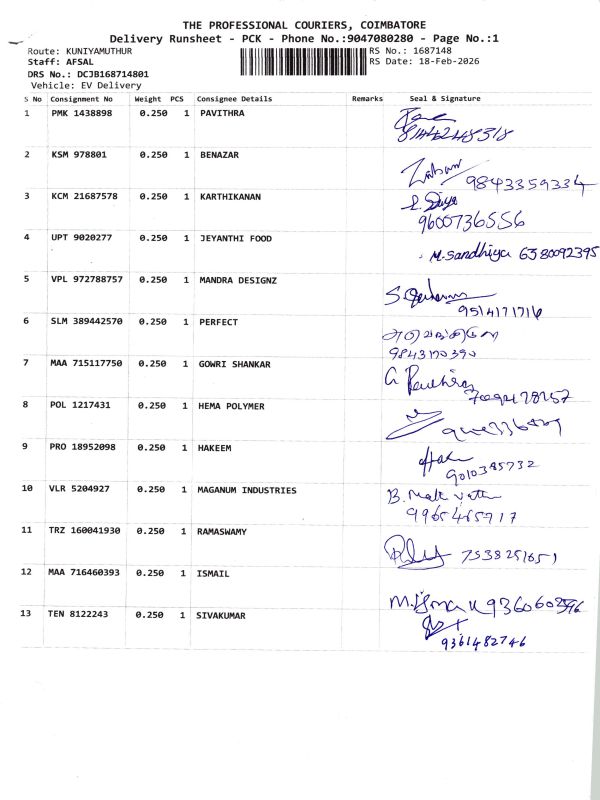 THE PROFESSIONAL COURIERS, COIMBATORE
Delivery Runsheet - PCK - Phone No.:9047080280 - Page No.:1
Route: KUNIYAMUTHUR RS No.: 1687148
Staff: AFSAL RS Date: 18-Feb-2026
DRS No.: DCJB168714801
Vehicle: EV Delivery
S No Consignment No Weight PCS Consignee Details Remarks Seal & Signature
1 PMK 1438898 0.250 1 PAVITHRA
2 KSM 978801 0.250 1 BENAZAR
9843359334
3 KCM 21687578 0.250 1 KARTHIKANAN
9600736556
4 UPT 9020277 0.250 1 JEYANTHI FOOD
M. Sandhiya 6380092395
5 VPL 972788757 0.250 1 MANDRA DESIGNZ
9514171716
6 SLM 389442570 0.250 1 PERFECT
9843170390
7 MAA 715117750 0.250 1 GOWRI SHANKAR
8 POL 1217431 0.250 1 HEMA POLYMER
9 PRO 18952098 0.250 1 HAKEEM
9010385732
10 VLR 5204927 0.250 1 MAGANUM INDUSTRIES
9965465917
11 TRZ 160041930 0.250 1 RAMASWAMY
7538251651
12 MAA 716460393 0.250 1 ISMAIL
13 TEN 8122243 0.250 1 SIVAKUMAR
9361482746